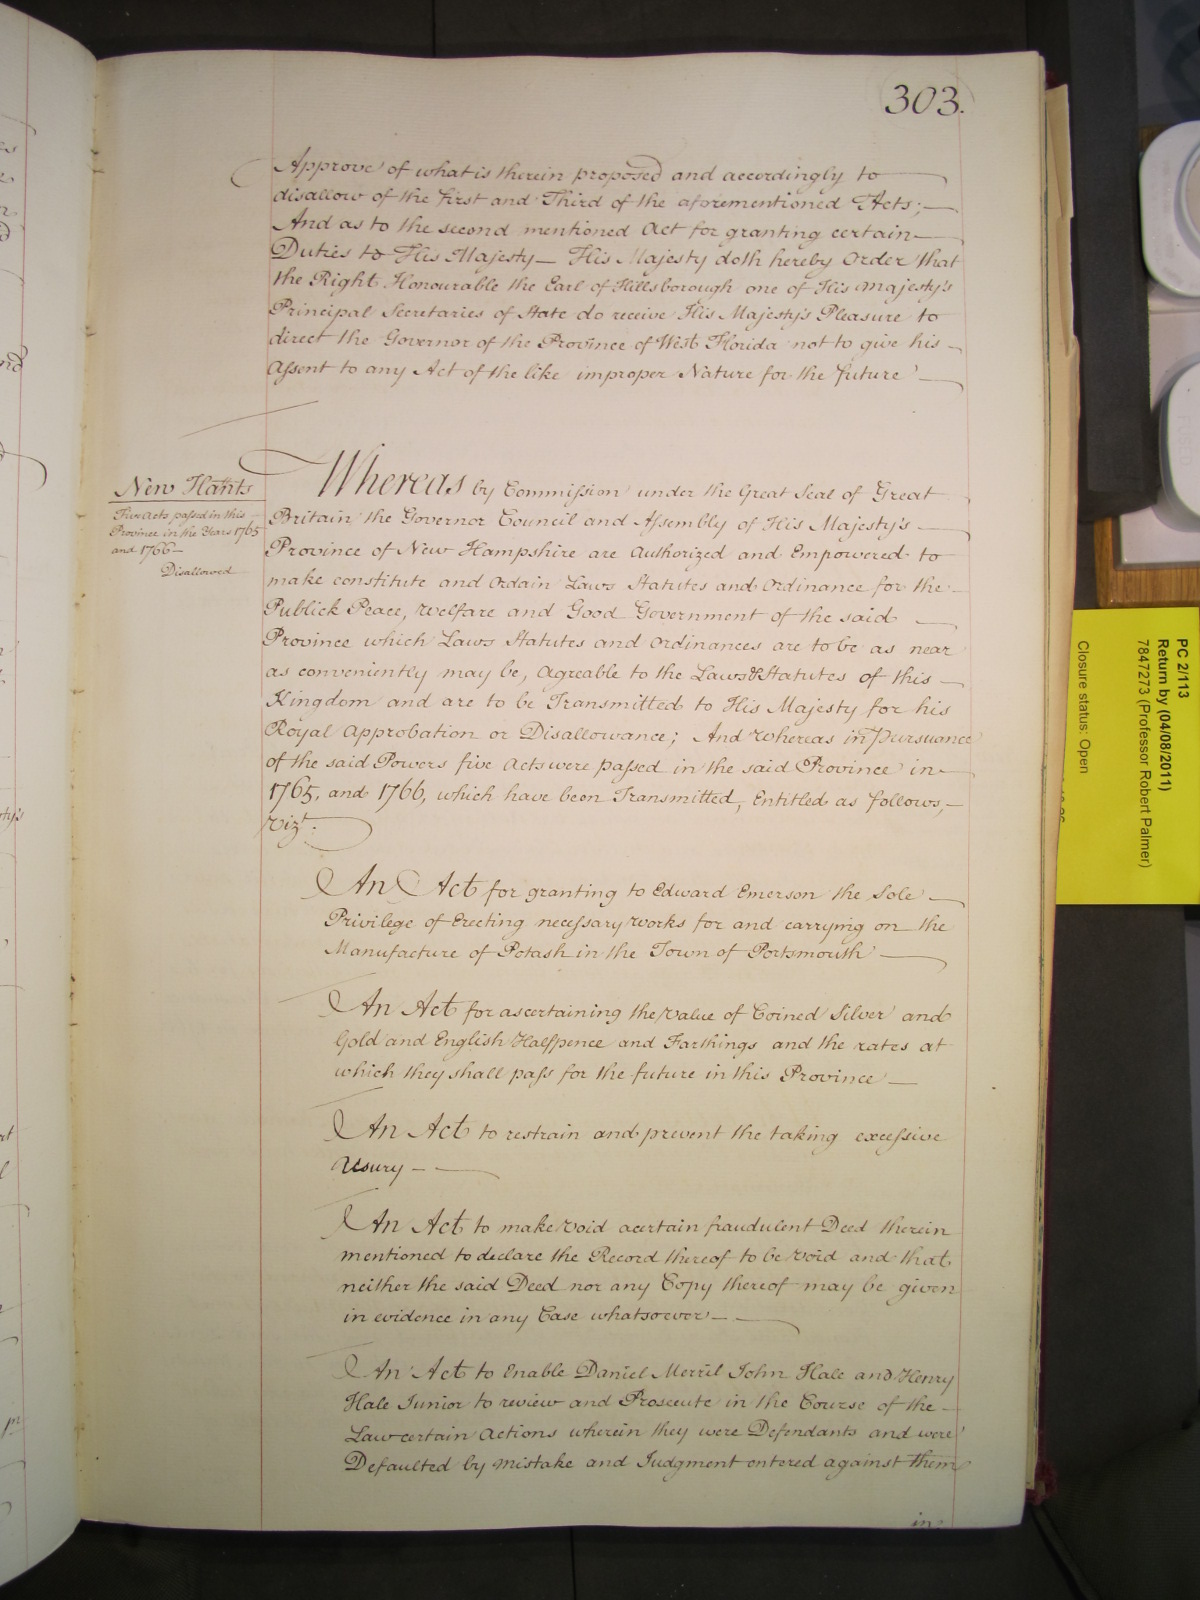 303.
Approve of what is therein proposed and accordingly to
disallow of the first and Third of the aforementioned Acts;
And as to the second mentioned Act for granting certain
Duties to His Majesty— His Majesty doth hereby Order that
the Right Honourable the Earl of Hillsborough one of His Majesty's
Principal Secretaries of State do receive His Majesty's Pleasure to
direct the Governor of the Province of West Florida not to give his
Assent to any Act of the like improper Nature for the future
New Hants
Five Acts passed in this
Province in the Years 1765
and 1766—
Disallowed
Whereas by Commission under the Great Seal of Great
Britain the Governor Council and Assembly of His Majesty's
Province of New Hampshire are Authorized and Empowered to
make constitute and Ordain Laws Statutes and Ordinance for the
Publick Peace, Welfare and Good Government of the said
Province which Laws Statutes and Ordinances are to be as near
as conveniently may be, Agreable to the Laws & Statutes of this
Kingdom and are to be Transmitted to His Majesty for his
Royal Approbation or Disallowance; And Whereas in Pursuance
of the said Powers five Acts were passed in the said Province in
1765, and 1766, which have been Transmitted, Entitled as follows,
Vizt.
An Act for granting to Edward Emerson the Sole
Privilege of Erecting necessary Works for and carrying on the
Manufacture of Potash in the Town of Portsmouth
An Act for ascertaining the Value of Coined Silver and
Gold and English Halfpence and Farthings and the rates at
which they shall pass for the future in this Province
An Act to restrain and prevent the taking excessive
Usury
An Act to make Void a certain fraudulent Deed therein
mentioned to declare the Record thereof to be Void and that
neither the said Deed nor any Copy thereof may be given
in evidence in any Case whatsoever
An Act to Enable Daniel Merril John Hale and Henry
Hale Junior to review and Prosecute in the Course of the
Law certain Actions wherein they were Defendants and were
Defaulted by Mistake and Judgment entered against them
in
PC 2/113
Return by (04/08/2011)
7847273 (Professor Robert Palmer)
Closure status: Open